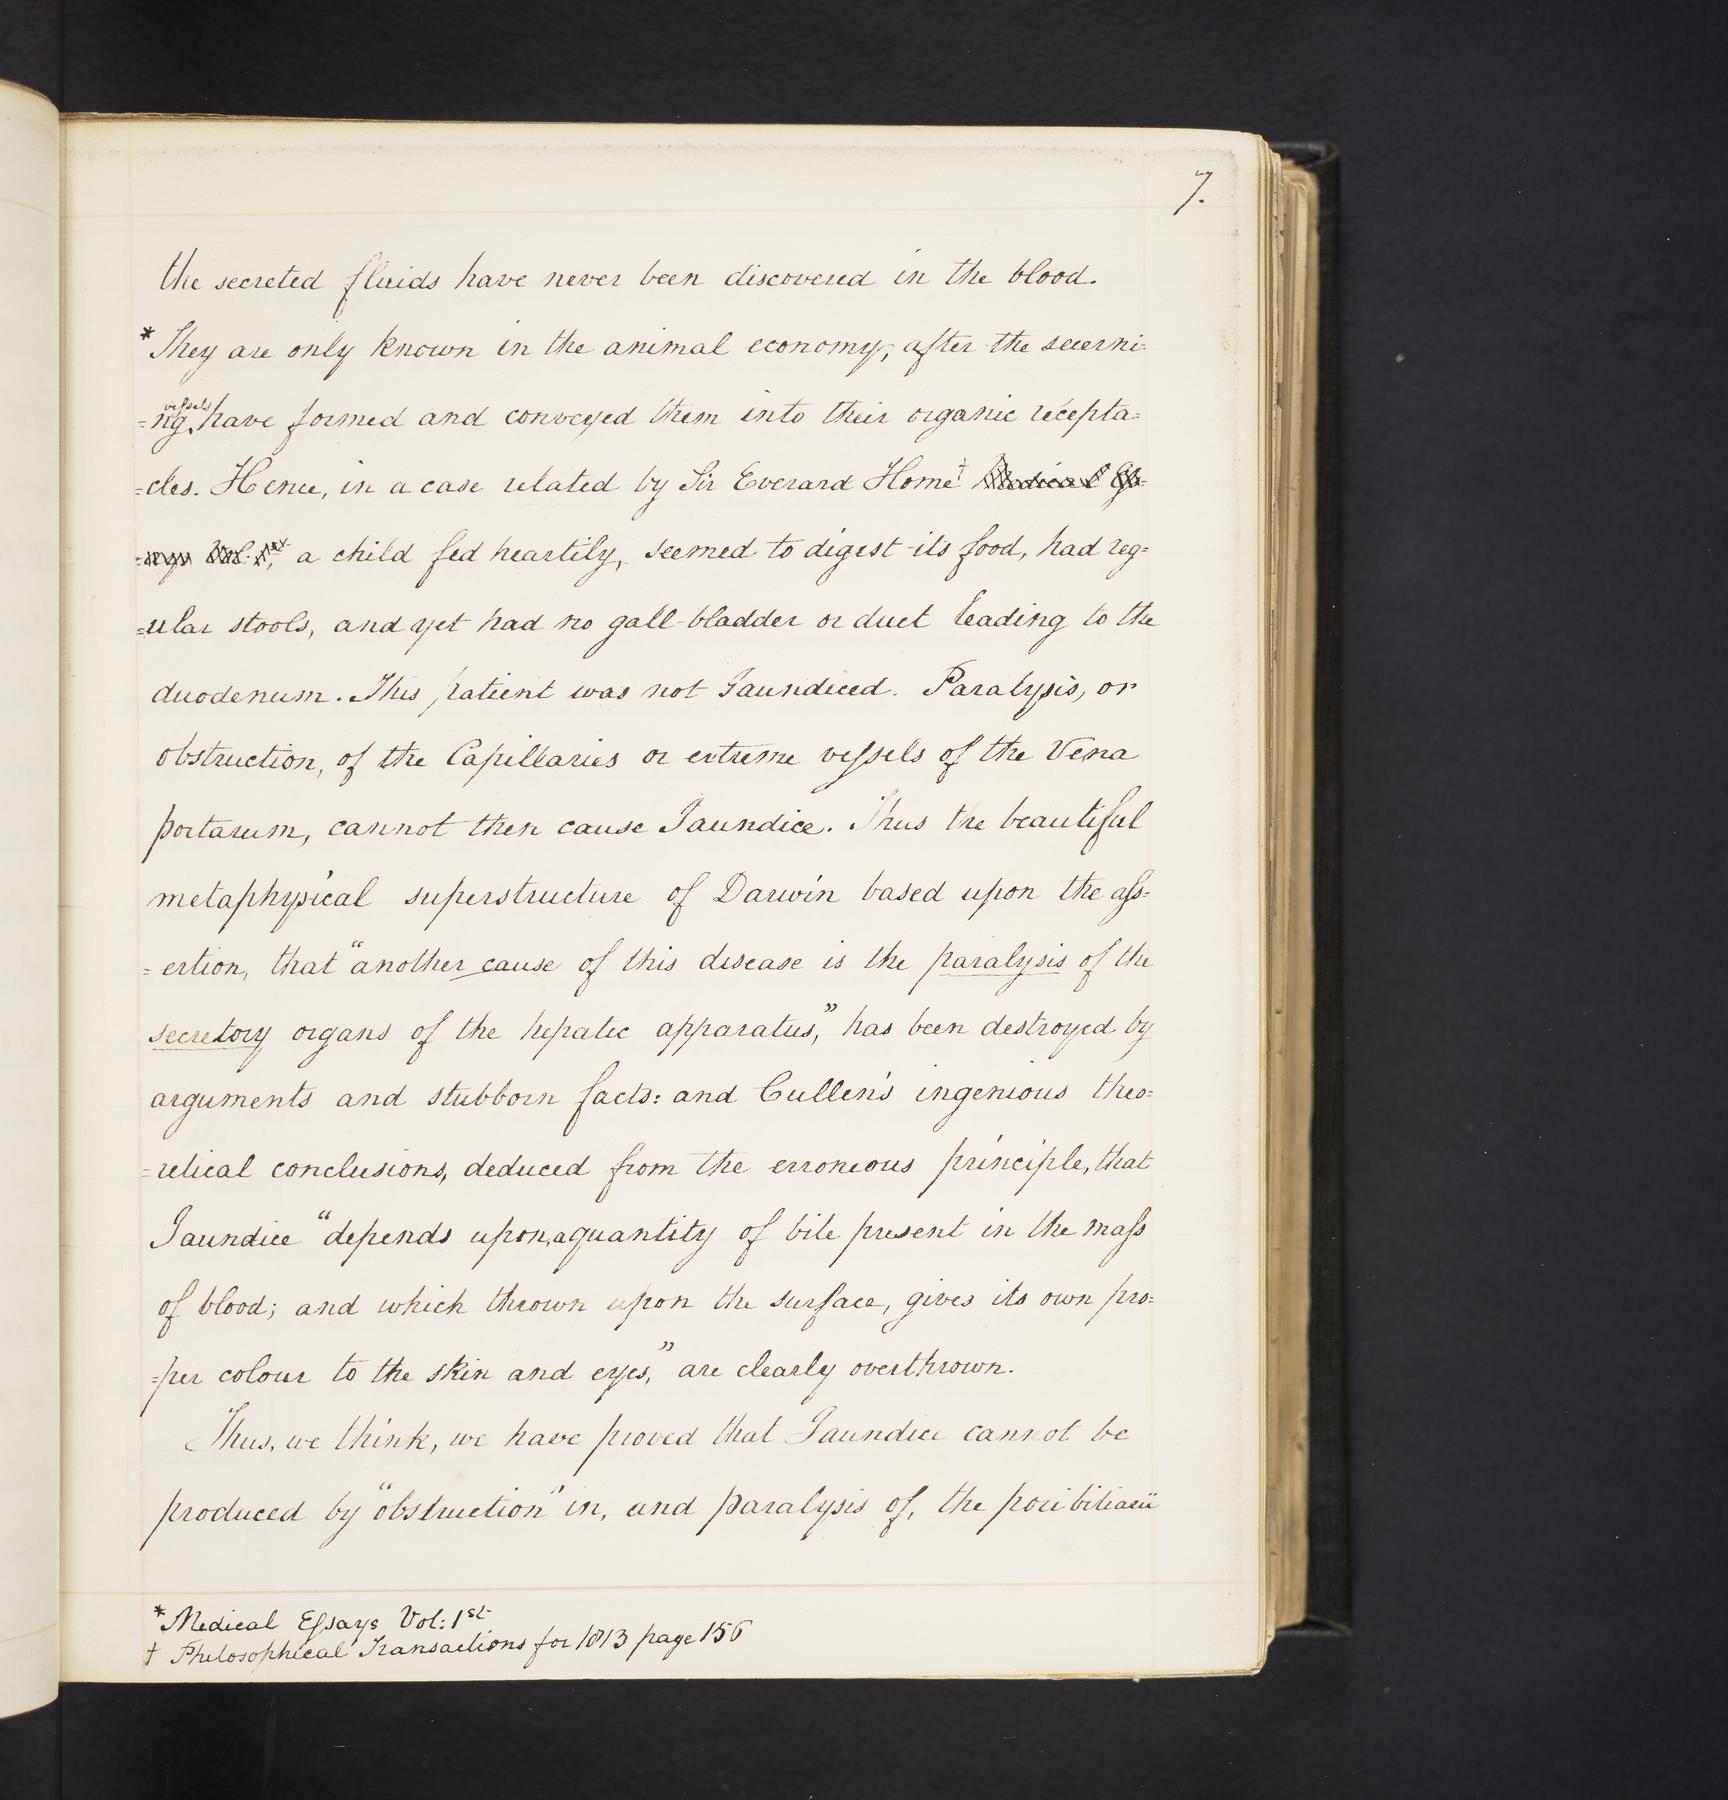 7.
the secreted fluids have never been discovered in the blood.
*They are only known in the animal economy, after the secerni-
=ng vessels have formed and conveyed them into their organic recepta=
=cles. Hence, in a case related by Sir Everard Home† Medical Es=
=says Vol. 1st, a child fed heartily, seemed to digest its food, had reg=
=ular stools, and yet had no gall-bladder or duct leading to the
duodenum. This patient was not Jaundiced. Paralysis, or
obstruction, of the Capillaries or extreme vessels of the Vena
portarum, cannot then cause Jaundice. Thus the beautiful
metaphysical superstructure of Darwin based upon the ass=
=ertion, that "another cause of this disease is the paralysis of the
secretory organs of the hepatic apparatus," has been destroyed by
arguments and stubborn facts: and Cullen's ingenious theo=
=retical conclusions, deduced from the erroneous principle, that
Jaundice "depends upon a quantity of bile present in the mass
of blood; and which thrown upon the surface, gives its own pro=
=per colour to the skin and eyes," are clearly overthrown.
Thus, we think, we have proved that Jaundice cannot be
produced by "obstruction" in, and paralysis of, the pori biliarii
*Medical Essays Vol: 1st
† Philosophical Transactions for 1813 page 156